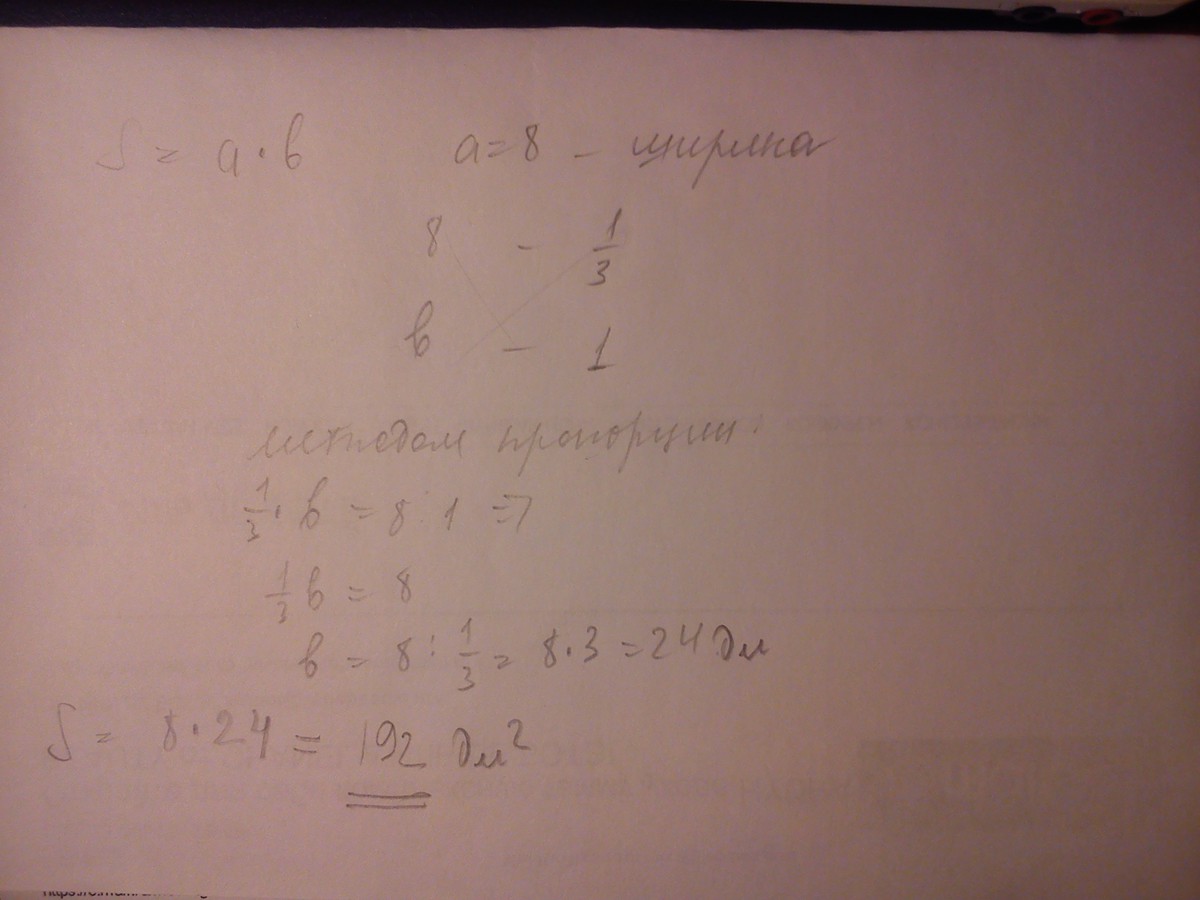 S = a · b    a = 8 – ширина
8 – 1/3
b – 1
методом пропорции:
1/3 · b = 8 · 1 =>
1/3 b = 8
b = 8 : 1/3 = 8 · 3 = 24 дм
S = 8 · 24 = 192 дм²